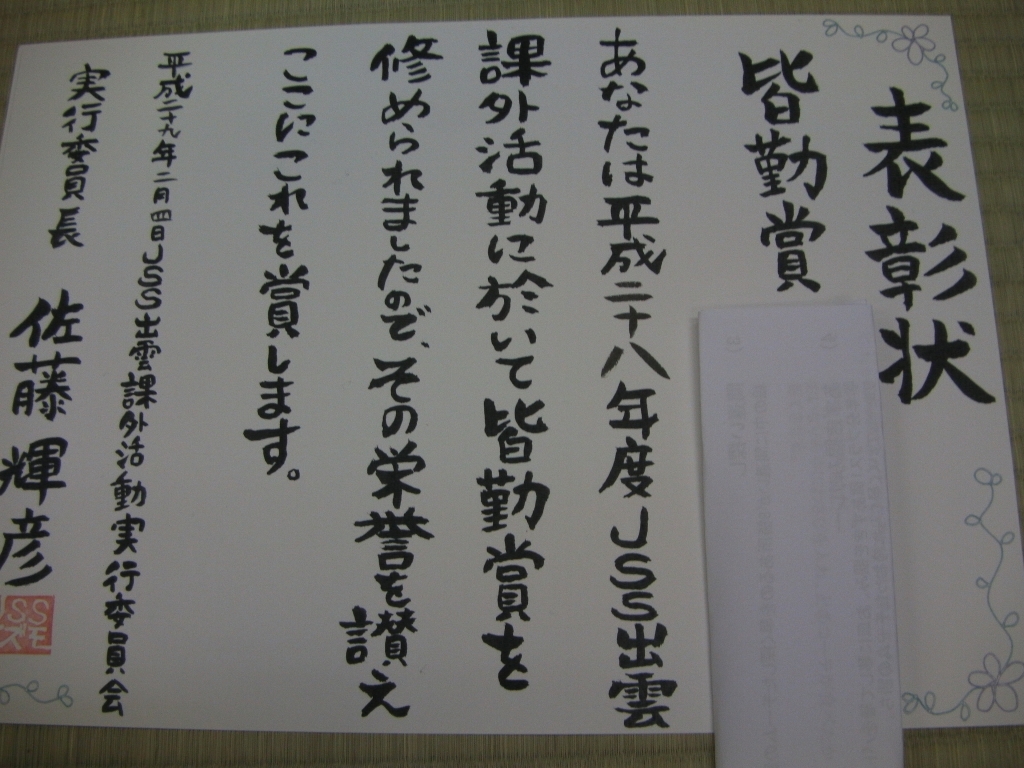 表彰状
皆勤賞
あなたは平成二十八年度JSS出雲
課外活動に於いて皆勤賞を
修められましたので、その栄誉を讃え
ここにこれを賞します。
平成二十九年二月四日JSS出雲課外活動実行委員会
実行委員長 佐藤輝彦